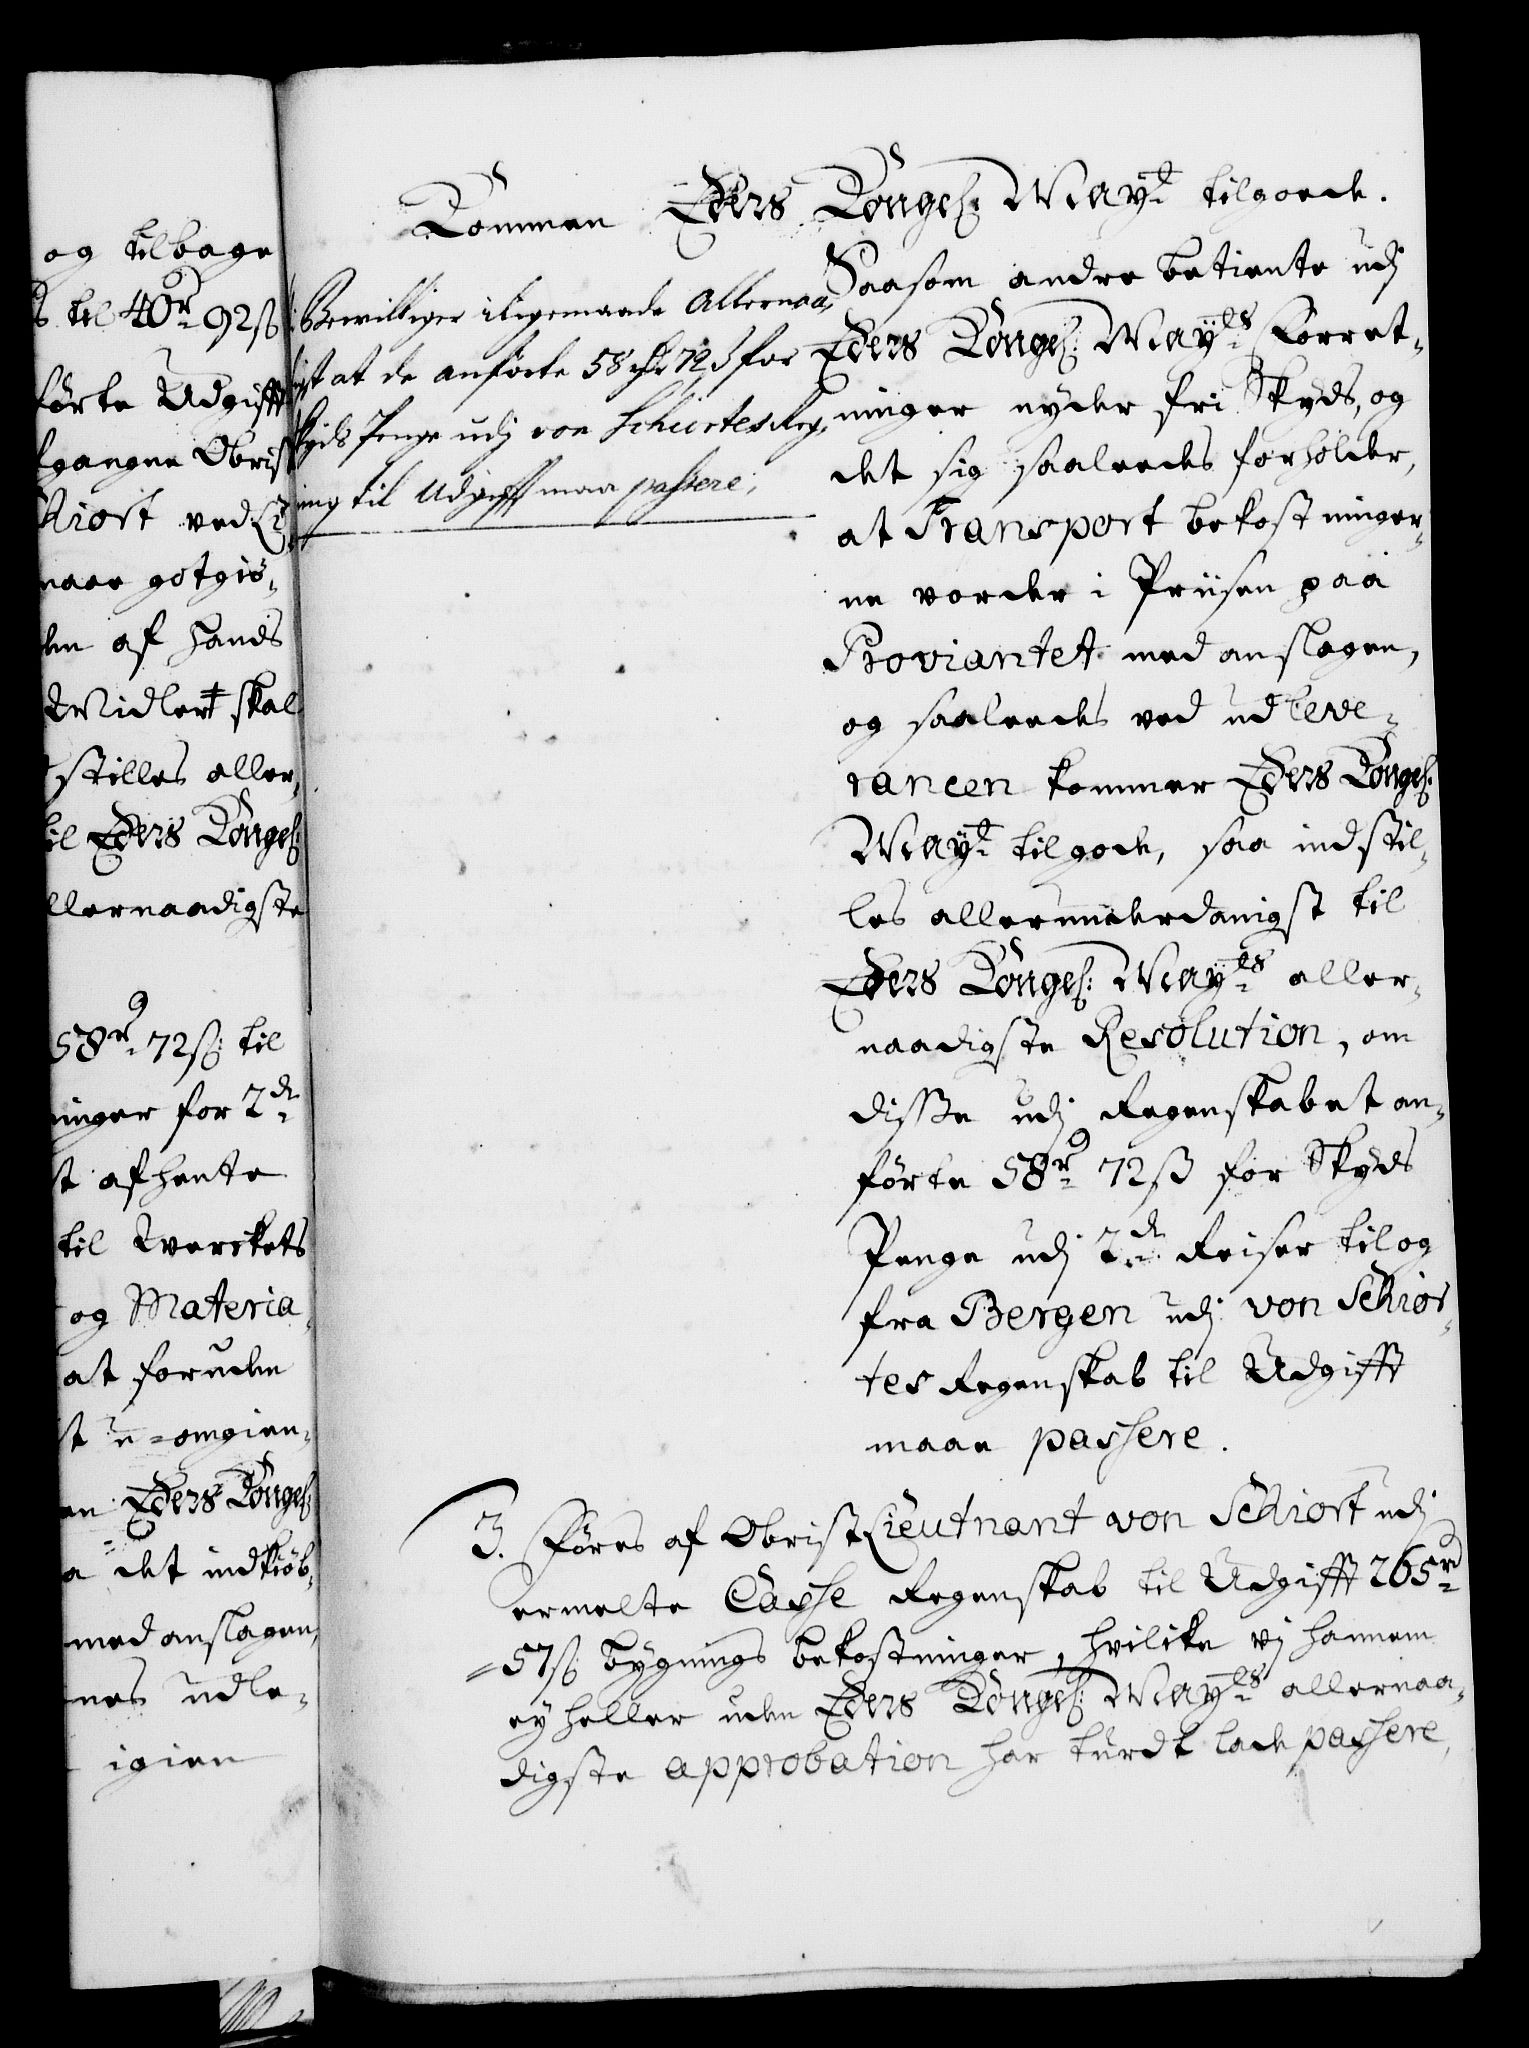 og tilbage
til 40r 92ß
førte Udgifft
gangne Obrist
Kiort ved
naar gotgiø-
den af hands
Midler skal
stilles aller-
til Eders Konges:
llernaadigste
58rd 72ß: til
ninger for 2de
st afhente
til Werckets
og Materia-
at foruden
st u=omgien-
en Eders Konges:
a det indkiøb-
med anslagen,
nes udle-
igien
Kommen Eders Konges: Mayt tilgode.
Bewilliger iligemaade Allernaa-
igst at de anførte 58 rdr 72 ß for
skyds Penge udj von Schiortes Reg-
ning til Udgifft maa passere;
Saasom andre betiente udj
Eders Konges: Mayts Forret-
ninger nyder fri Skyds, og
det sig saaledes forholder,
at Transport bekostninger-
ne vorder i Priisen paa
Proviantet med anslagen,
og saaledes ved udleve-
rancen kommer Eders Konges:
Mayt tilgode, saa indstil-
les allerunderdanigst til
Eders Konges: Mayts aller-
naadigste Resolution, om
disse udj Regenskabet an-
førte 58rd 72ß for Skyds
Penge udj 2de Reiser til og
fra Bergen udj von Schiør-
tes Regenskab til Udgifft
maae passere.
3. Føres af Obrist Lieutnant von Schiort udj
ermelte Casse Regenskab til Udgifft 265rd
57ß: bygnings bekostninger, hvilke vj hannem
ey heller uden Eders Konges: Mayts allernaa-
digste approbation har turdt lade passere,